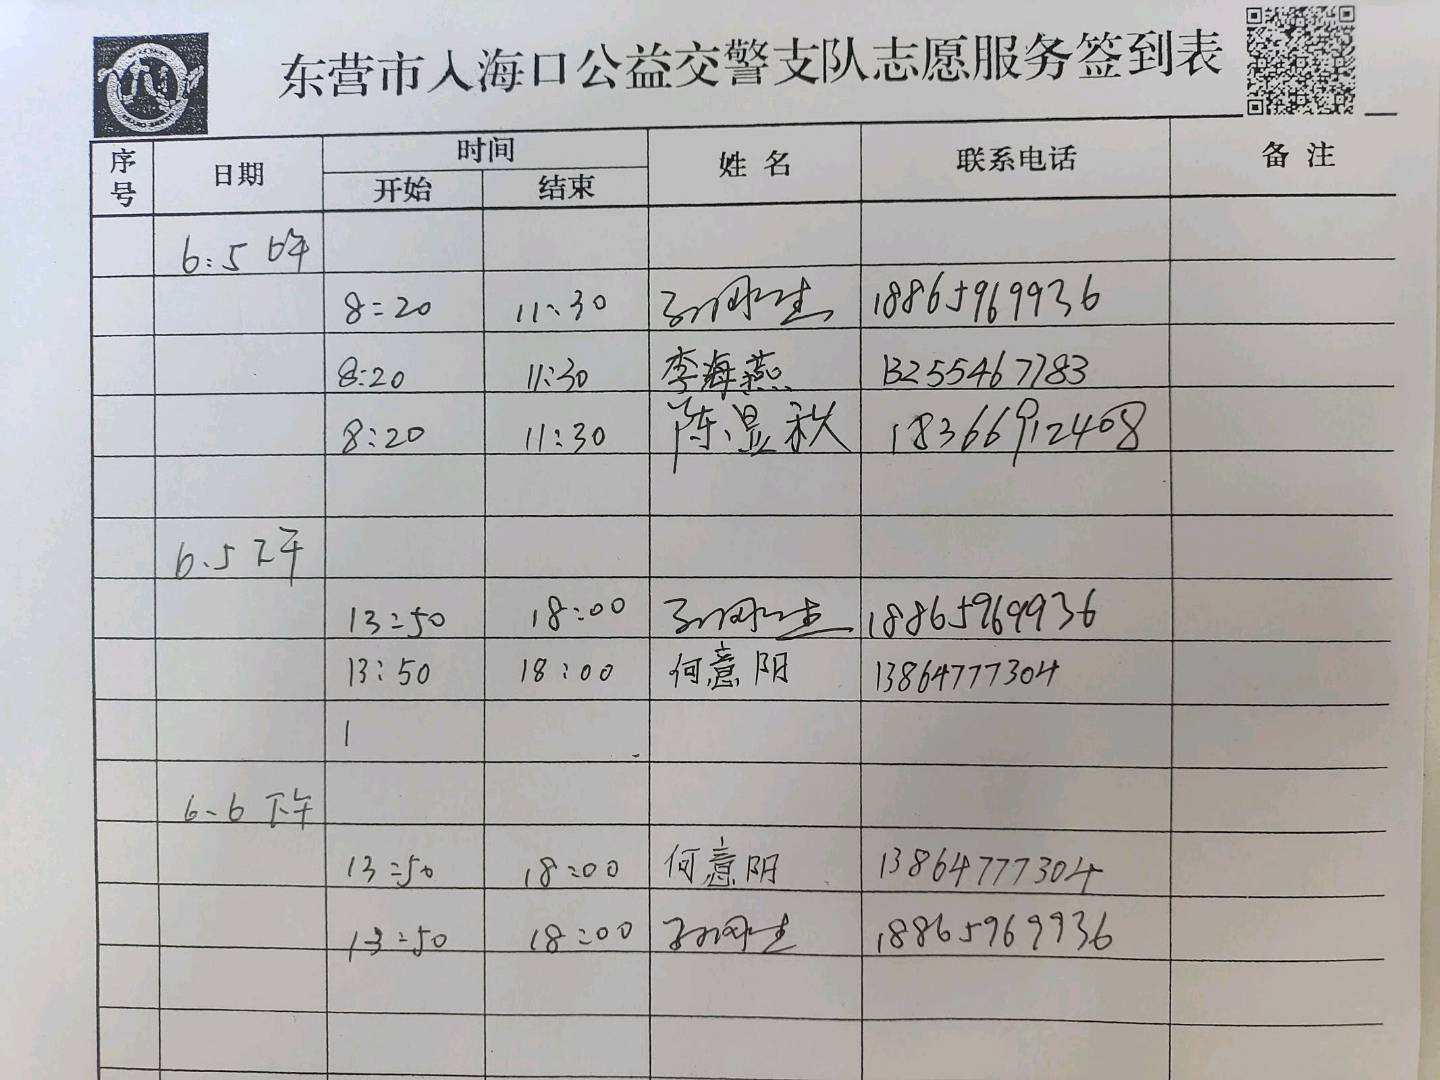 东营市入海口公益交警支队志愿服务签到表
序号 日期 时间 姓名 联系电话 备注
开始 结束
6:5
8:20 11:30 18865969936
8:20 11:30 李海燕 13255467783
8:20 11:30 陈显秋 18366912408
6.5 下午
13:50 18:00 18865969936
13:50 18:00 何意阳 13864777304
1
6.6 下午
13:50 18:00 何意阳 13864777304
13:50 18:00 18865969936